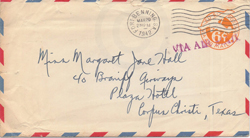 BENNING
MAR
1945
6¢
VIA AIR MAIL
Miss Margaret Jane Hall
c/o Braniff Airways
Plaza Hotel
Corpus Christi, Texas